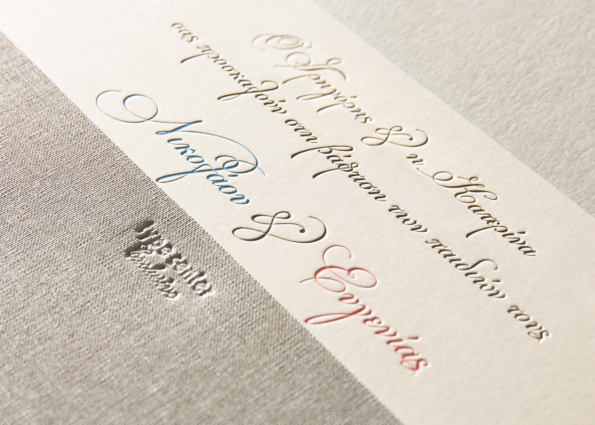 Ο Γρηγόρης & η Κατερίνα
σας προσκαλούν στη βάφτιση των παιδιών τους
Νικολάου
& Ευγενίας